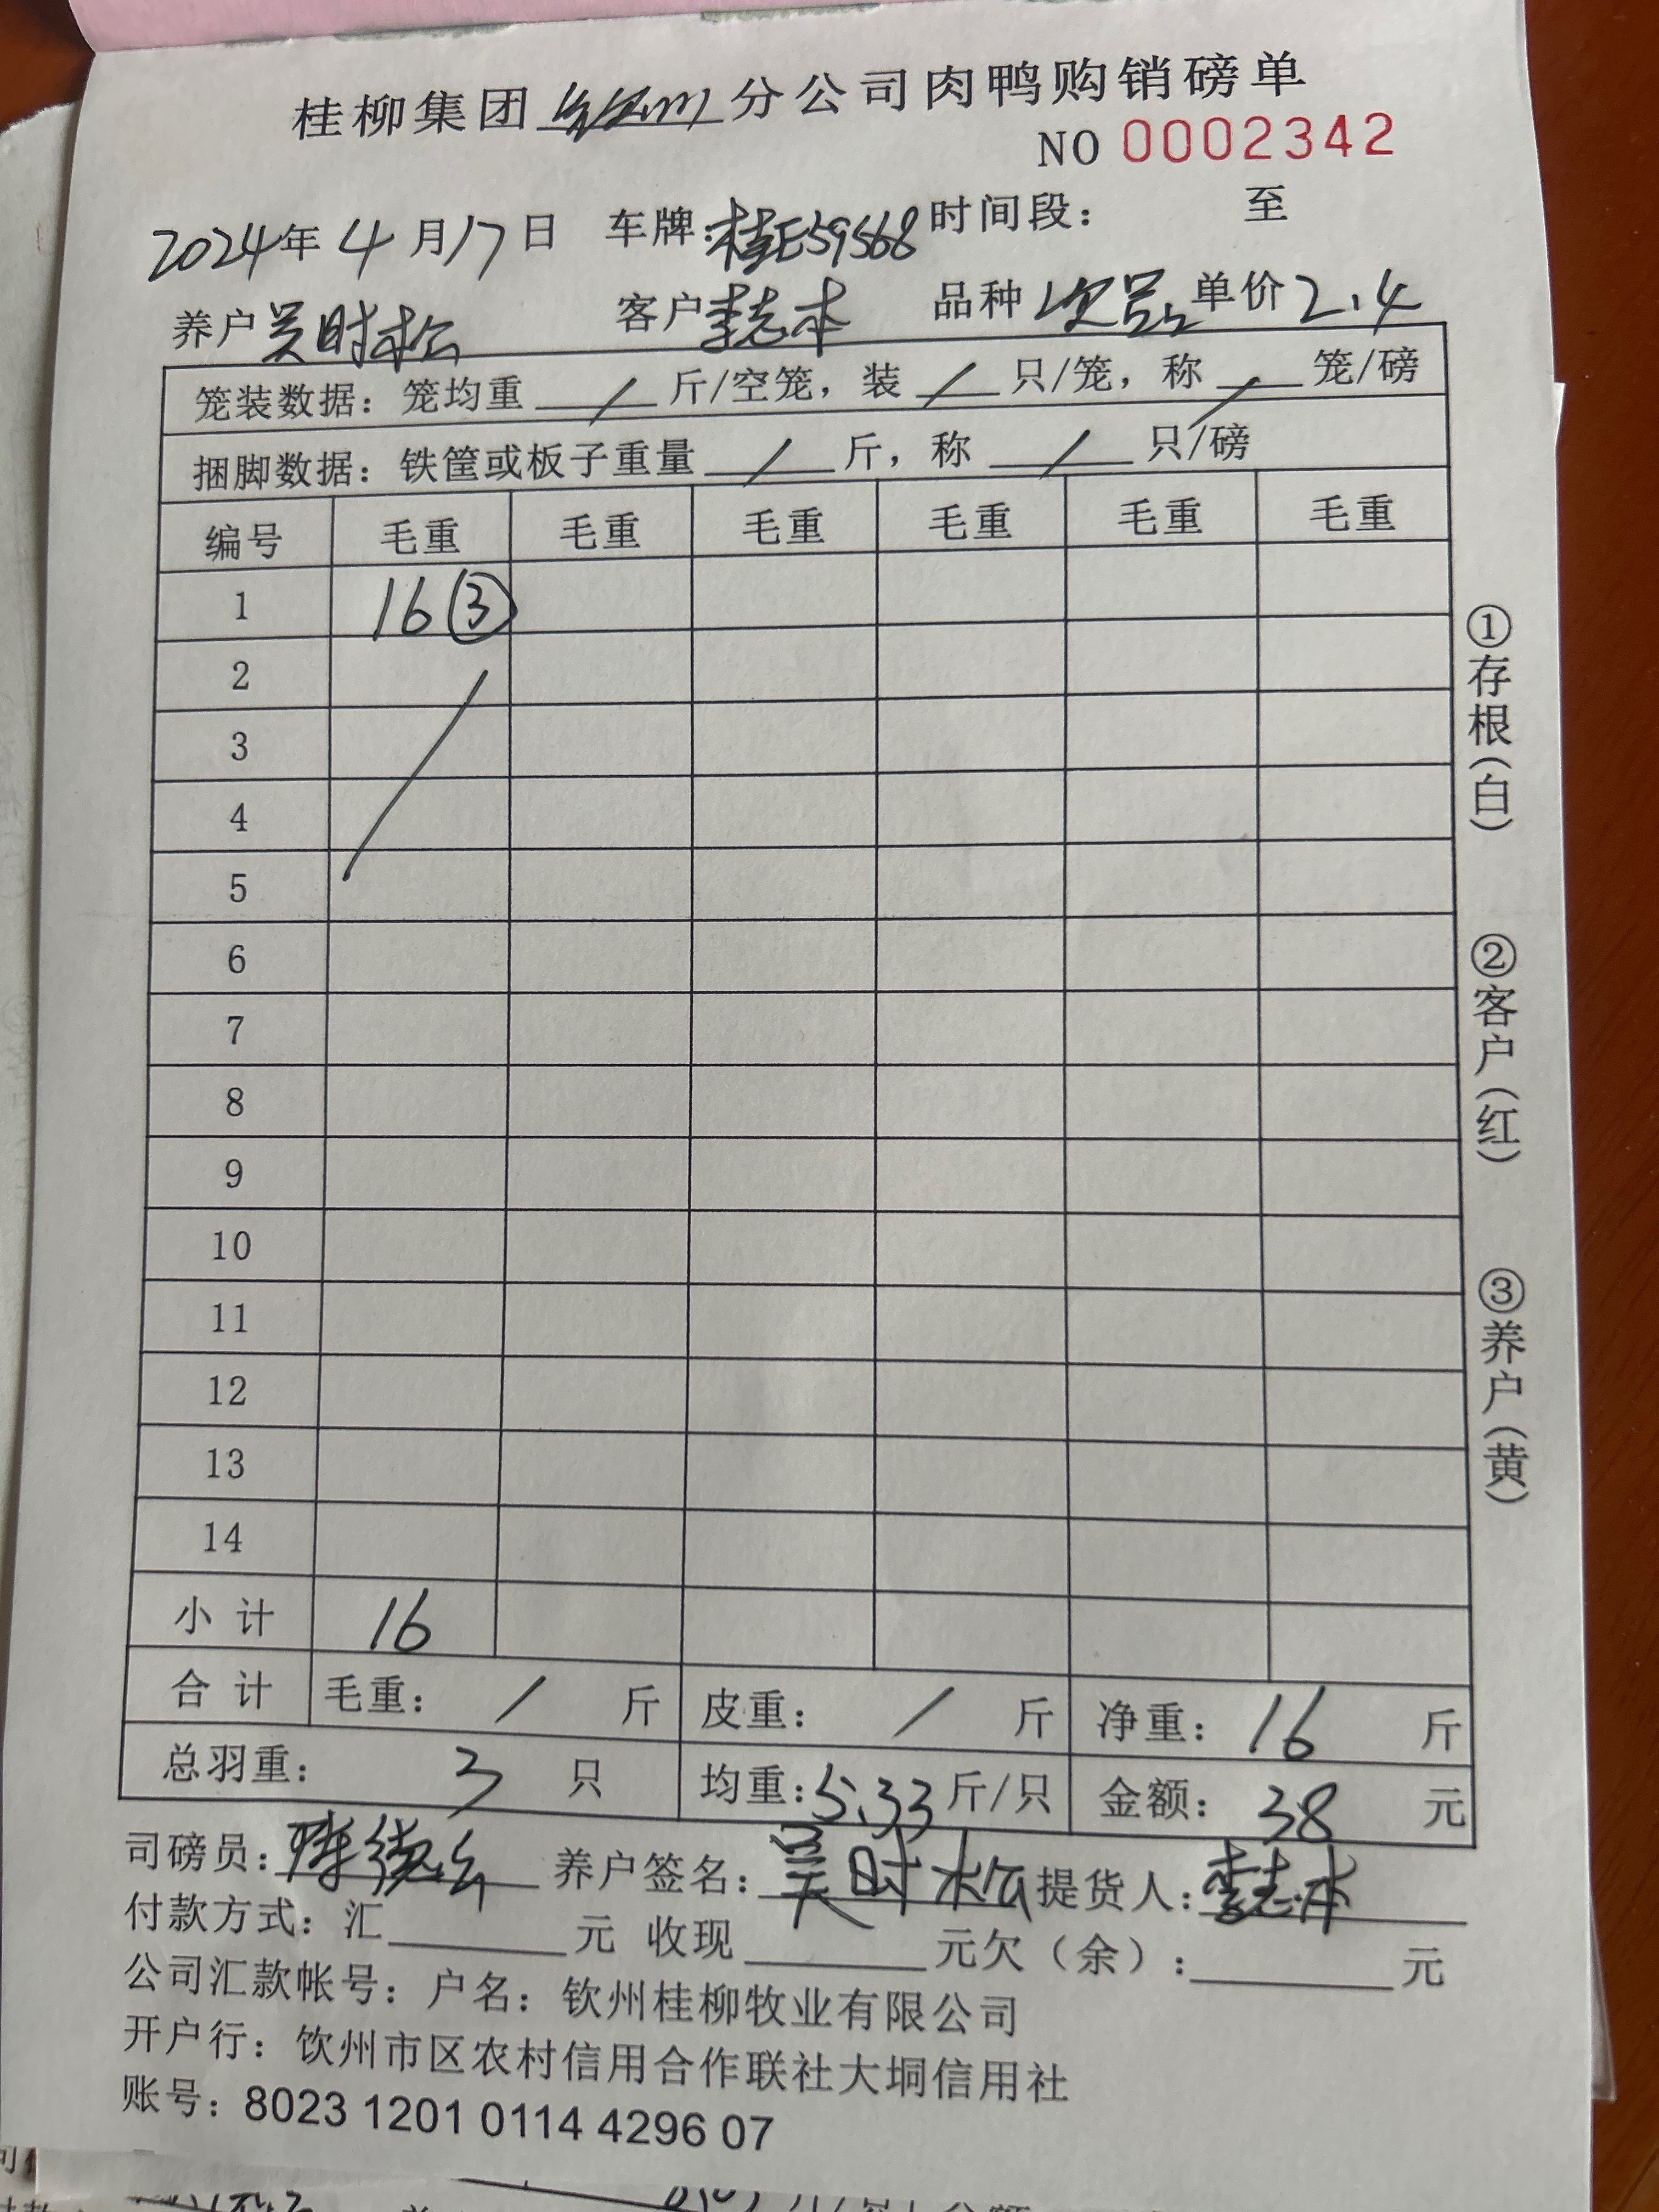 桂柳集团 钦州 分公司肉鸭购销磅单
NO 0002342
2024年 4月17日 车牌:桂E59568 时间段: 至
养户 吴时松 客户 李志本 品种 次品 单价 2.4
笼装数据:笼均重 / 斤/空笼,装 / 只/笼,称 / 笼/磅
捆脚数据:铁筐或板子重量 / 斤,称 / 只/磅
编号 毛重 毛重 毛重 毛重 毛重 毛重
1 16 ③
2
3
4
5
6
7
8
9
10
11
12
13
14
小计 16
合计 毛重: / 斤 皮重: / 斤 净重: 16 斤
总羽重: 3 只 均重:5.33斤/只 金额: 38 元
司磅员: 养户签名:吴时松 提货人:李志本
付款方式:汇 元 收现 元欠(余): 元
公司汇款帐号:户名:钦州桂柳牧业有限公司
开户行:饮州市区农村信用合作联社大垌信用社
账号:8023 1201 0114 4296 07
①存根(白)
②客户(红)
③养户(黄)